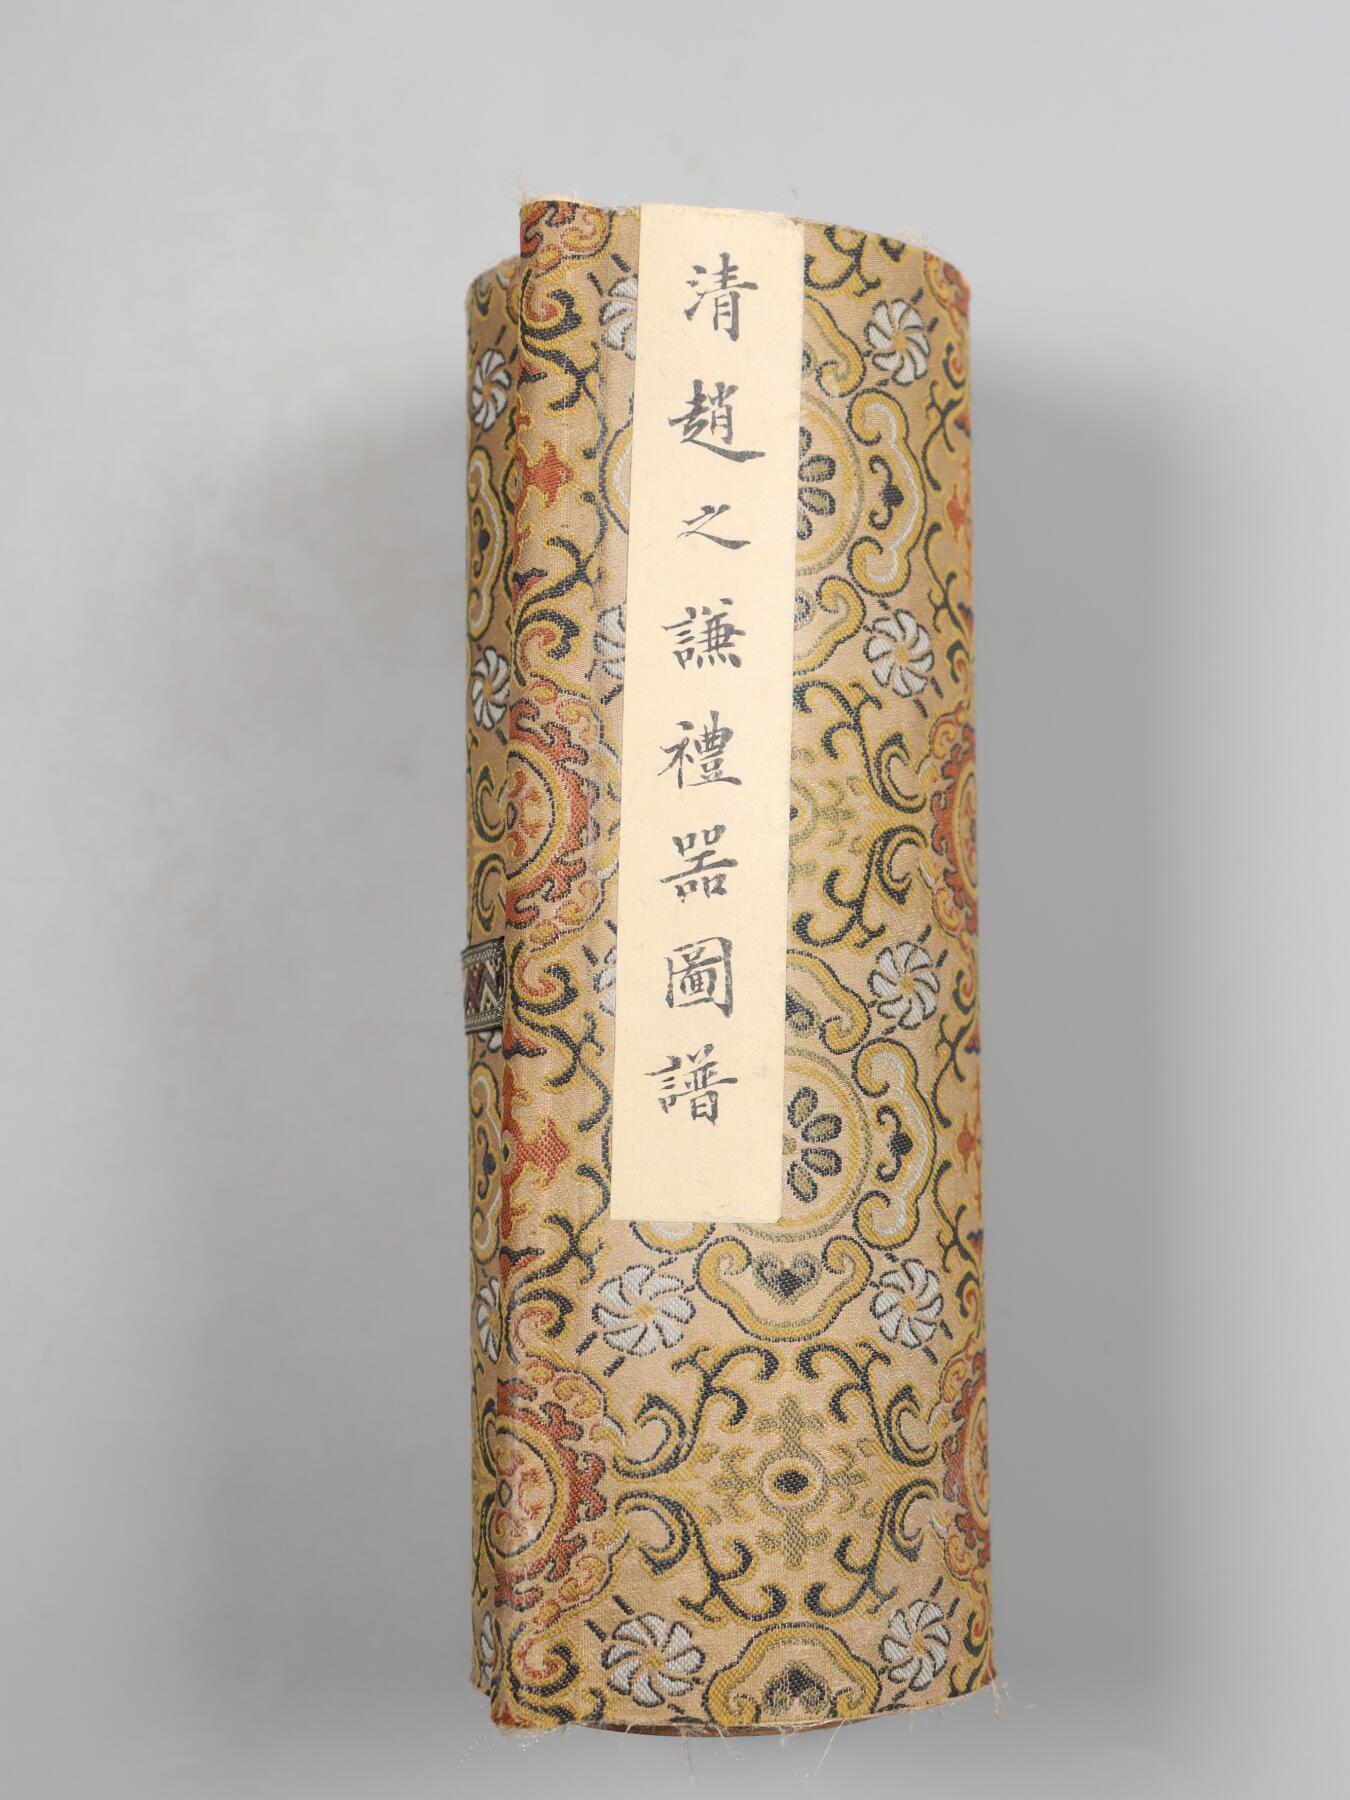 清趙之謙禮器圖譜